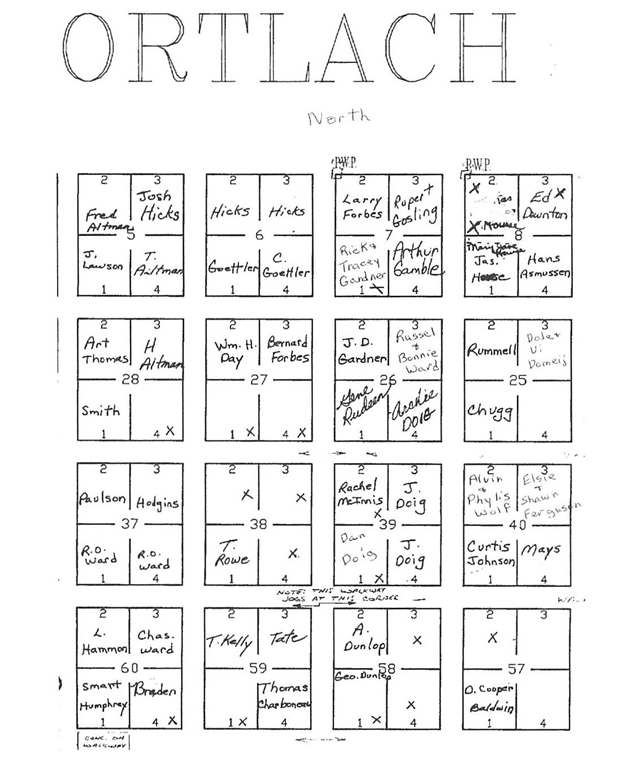 ORTLACH
North
P.W.P.
P.W.P.
2 3
Fred Altman
Josh Hicks
5
J. Lawson
T. Altman
1 4
2 3
Hicks
Hicks
6
Goettler
C. Goettler
1 4
2 3
Larry Forbes
Rupert Gosling
7
Rick & Tracey Gardner
Arthur Gamble
1 X 4
2 3
X
X
Ed X
Daunton
8
Jas.
Hans Asmussen
1 4
2 3
Art Thomas
H Altman
28
Smith
1 4 X
2 3
Wm. H. Day
Bernard Forbes
27
1 X 4 X
2 3
J.D. Gardner
Russel & Bonnie Ward
26
Gene Rudeen
Archie Doig
1 4
2 3
Rummell
Dale & Vi Domeij
25
Chugg
1 4
2 3
Paulson
Hodgins
37
R.O. Ward
R.O. Ward
1 4
2 3
X
X
38
T. Rowe
X
1 4
2 3
Rachel McInnis
X
J. Doig
39
Dan Doig
J. Doig
1 X 4
2 3
Alvin & Phylis Wolf
Elsie & Shawn Ferguson
40
Curtis Johnson
Mays
1 4
NOTE: THIS WALKWAY
JOGS AT THIS CORNER
2 3
L. Hammon
Chas. Ward
60
Smart Humphrey
Braden
1 4 X
CONC. ON
WALKWAY
2 3
T. Kelly
Tate
59
Thomas Charboneau
1 X 4
2 3
A. Dunlop
X
58
Geo. Dunlop
X
1 X 4
2 3
X
57
D. Cooper
Baldwin
1 4